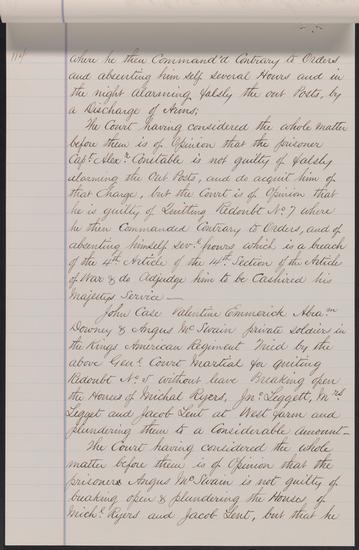 where he then Command'd Contrary to Orders
and absenting him self several Hours and in
the night alarming falsly the out Posts, by
a Discharge of Arms;
The Court having considered the whole matter
before them is of Opinion that the prisoner
Capt. Alexr. Cnitable is not guilty of falsly
alarming the Out Posts, and do acquit him of
that Charge, but the Court is of Opinion that
he is guilty of Quitting Redoubt No 7 where
he then Commanded Contrary to Orders, and of
absenting himself Sevl. hours which is a breach
of the 4th Article of the 14th Section of the Article
of War & do Adjudge him to be Cashired his
Majestys Service —
John Case Valentine Emmerick Abram
Downey & Angus McSwain private soldiers in
the Kings American Regiment Tried by the
above Genl. Court Martial for quiting
Redoubt No 5 without leave Breaking open
the Houses of Michal Ryers, Jno. Leggett, Mrs
Legget and Jacob Lent at West farm and
plundering them to a Considerable amount —
The Court having considered the whole
matter before them is of Opinion that the
prisoner Angus McSwain is not guilty of
breaking open & plundering the Houses of
Michl. Ryers and Jacob Lent, but that he